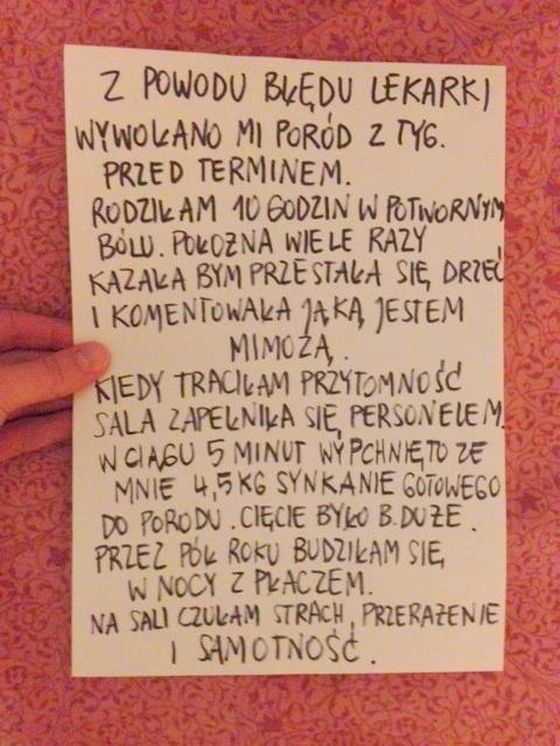 Z POWODU BŁĘDU LEKARKI
WYWOŁANO MI PORÓD 2 TYG.
PRZED TERMINEM.
RODZIŁAM 10 GODZIN W POTWORNYM
BÓLU. POŁOŻNA WIELE RAZY
KAZAŁA BYM PRZESTAŁA SIĘ DRZEĆ
I KOMENTOWAŁA JĄKĄ JESTEM
MIMOZĄ.
KIEDY TRACIŁAM PRZYTOMNOŚĆ
SALA ZAPEŁNIŁA SIĘ PERSONELEM.
W CIĄGU 5 MINUT WYPCHNIĘTO ZE
MNIE 4,5KG SYNKA NIE GOTOWEGO
DO PORODU. CIĘCIE BYŁO B. DUŻE.
PRZEZ PÓŁ ROKU BUDZIŁAM SIĘ
W NOCY Z PŁACZEM.
NA SALI CZUŁAM STRACH, PRZERAŻENIE
I SAMOTNOŚĆ.